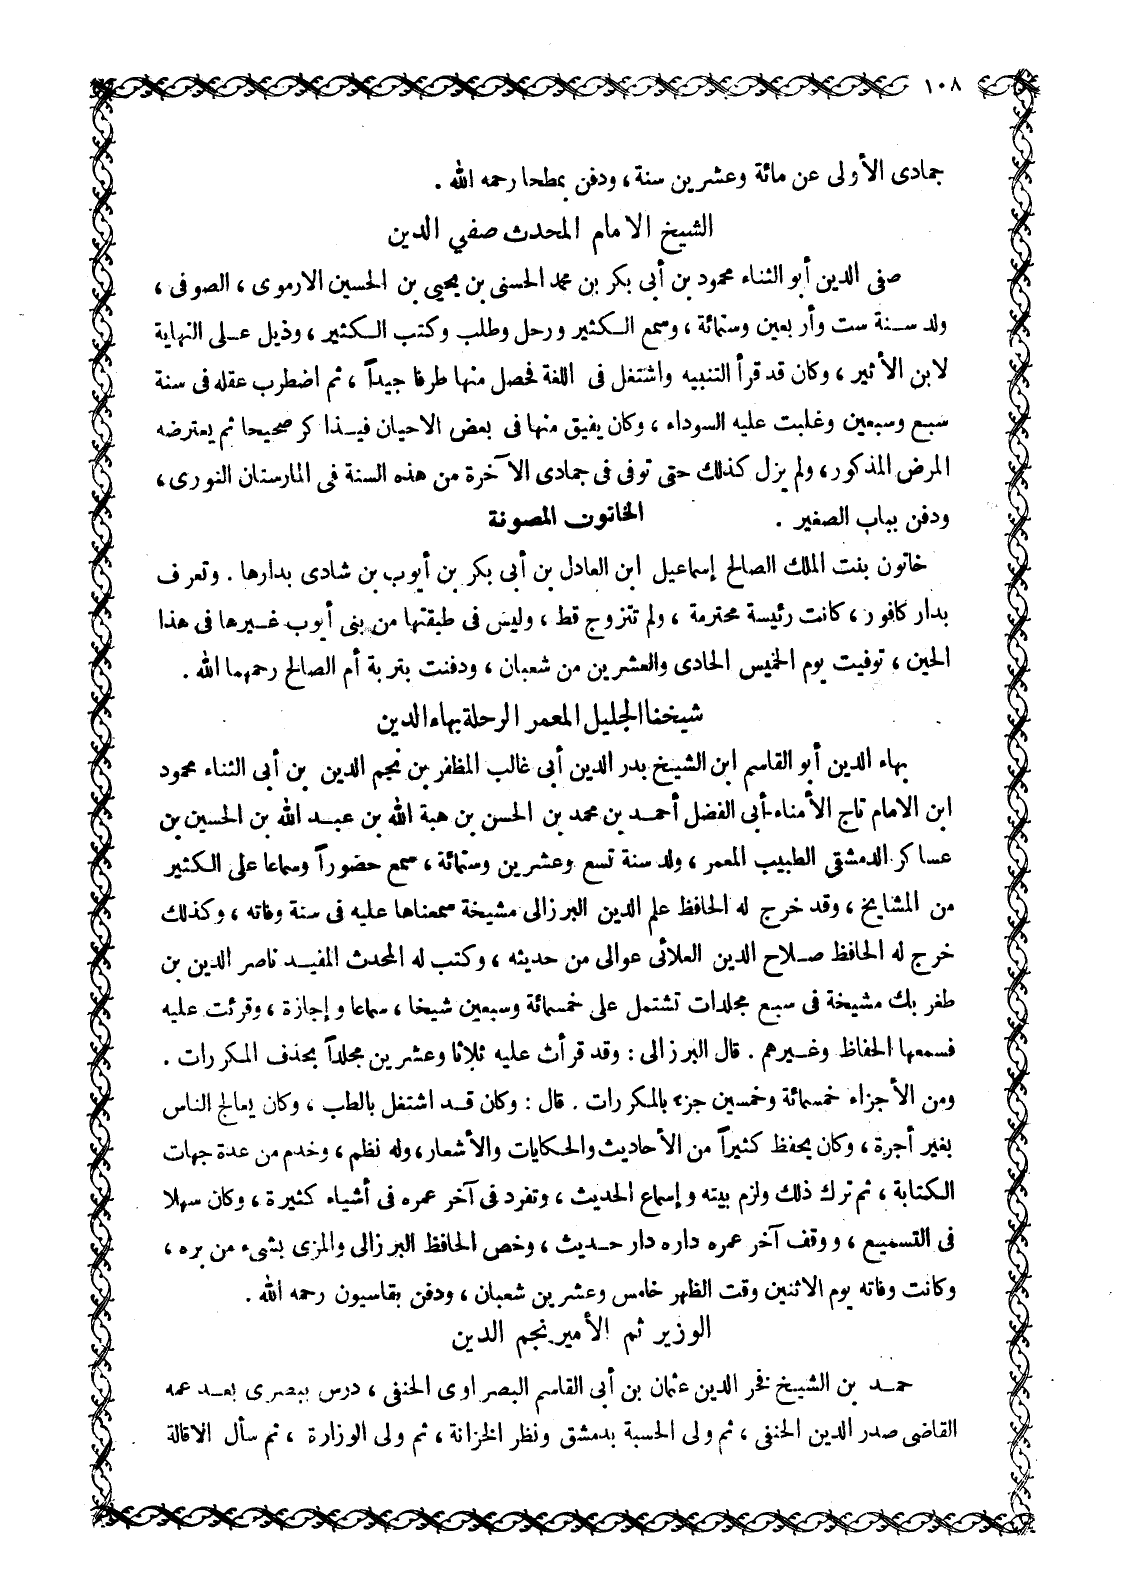 ١٠٨
جمادى الأولى عن مائة وعشرين سنة ، ودفن بمطحا رحمه الله .
الشيخ الامام المحدث صفي الدين
صفى الدين أبو الثناء محمود بن أبى بكر بن محمد الحسنى بن يحيى بن الحسين الارموى ، الصوفى ،
ولد سنة ست وأربعين وستمائة ، وسمع الكثير ورحل وطلب وكتب الكثير ، وذيل على النهاية
لابن الأثير ، وكان قد قرأ التنبيه واشتغل فى اللغة فحصل منها طرفا جيداً ، ثم اضطرب عقله فى سنة
سبع وسبعين وغلبت عليه السوداء ، وكان يفيق منها فى بعض الاحيان فيذا كر صحيحا ثم يعترضه
المرض المذكور ، ولم يزل كذلك حتى توفى فى جمادى الآخرة من هذه السنة فى المارستان النورى ،
ودفن بباب الصغير . الخاتون المصونة
خاتون بنت الملك الصالح إسماعيل ابن العادل بن أبى بكر بن أيوب بن شادى بدارها . وتعرف
بدار كافور ، كانت رئيسة محترمة ، ولم تتزوج قط ، وليس فى طبقتها من بنى أيوب غيرها فى هذا
الحين ، توفيت يوم الخميس الحادى والعشرين من شعبان ، ودفنت بتربة أم الصالح رحمهما الله .
شيخنا الجليل المعمر الرحلة بهاء الدين
بهاء الدين أبو القاسم ابن الشيخ بدر الدين أبى غالب المظفر بن نجم الدين بن أبى الثناء محمود
ابن الامام تاج الأمناء أبى الفضل أحمد بن محمد بن الحسن بن هبة الله بن عبد الله بن الحسين بن
عساكر الدمشقى الطبيب المعمر ، ولد سنة تسع وعشرين وستمائة ، سمع حضوراً وسماعا على الكثير
من المشايخ ، وقد خرج له الحافظ علم الدين البرزالى مشيخة سمعناها عليه فى سنة وفاته ، وكذلك
خرج له الحافظ صلاح الدين العلائى عوالى من حديثه ، وكتب له المحدث المفيد ناصر الدين بن
طغر بك مشيخة فى سبع مجلدات تشتمل على خمسمائة وسبعين شيخا ، سماعا وإجازة ، وقرئت عليه
فسمعها الحفاظ وغيرهم . قال البرزالى : وقد قرأت عليه ثلاثا وعشرين مجلداً بحذف المكررات .
ومن الأجزاء خمسمائة وخمسين جزء بالمكررات . قال : وكان قد اشتغل بالطب ، وكان يعالج الناس
بغير أجرة ، وكان يحفظ كثيراً من الأحاديث والحكايات والأشعار ، وله نظم ، وخدم من عدة جهات
الكتابة ، ثم ترك ذلك ولزم بيته وإسماع الحديث ، وتفرد فى آخر عمره فى أشياء كثيرة ، وكان سهلا
فى التسميع ، ووقف آخر عمره داره دار حديث ، وخص الحافظ البرزالى والمزى بشىء من بره ،
وكانت وفاته يوم الاثنين وقت الظهر خامس وعشرين شعبان ، ودفن بقاسيون رحمه الله .
الوزير ثم الأمير نجم الدين
حمد بن الشيخ فخر الدين عثمان بن أبى القاسم البصراوى الحنفى ، درس ببصرى بعد عمه
القاضى صدر الدين الحنفى ، ثم ولى الحسبة بدمشق ونظر الخزانة ، ثم ولى الوزارة ، ثم سأل الاقالة